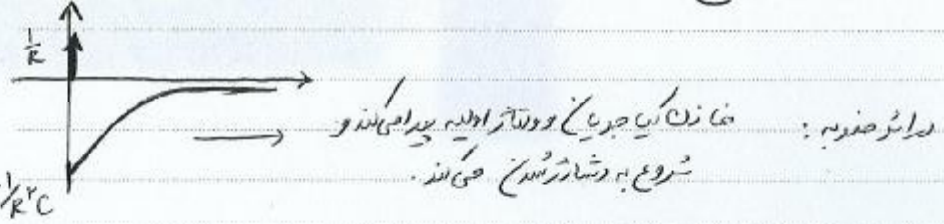 1/R
در اثر ضربه : خازن یا جریان و ولتاژ اولیه پیدا می‌کند و
شروع به دشارژ شدن می‌کند.
1/R²C